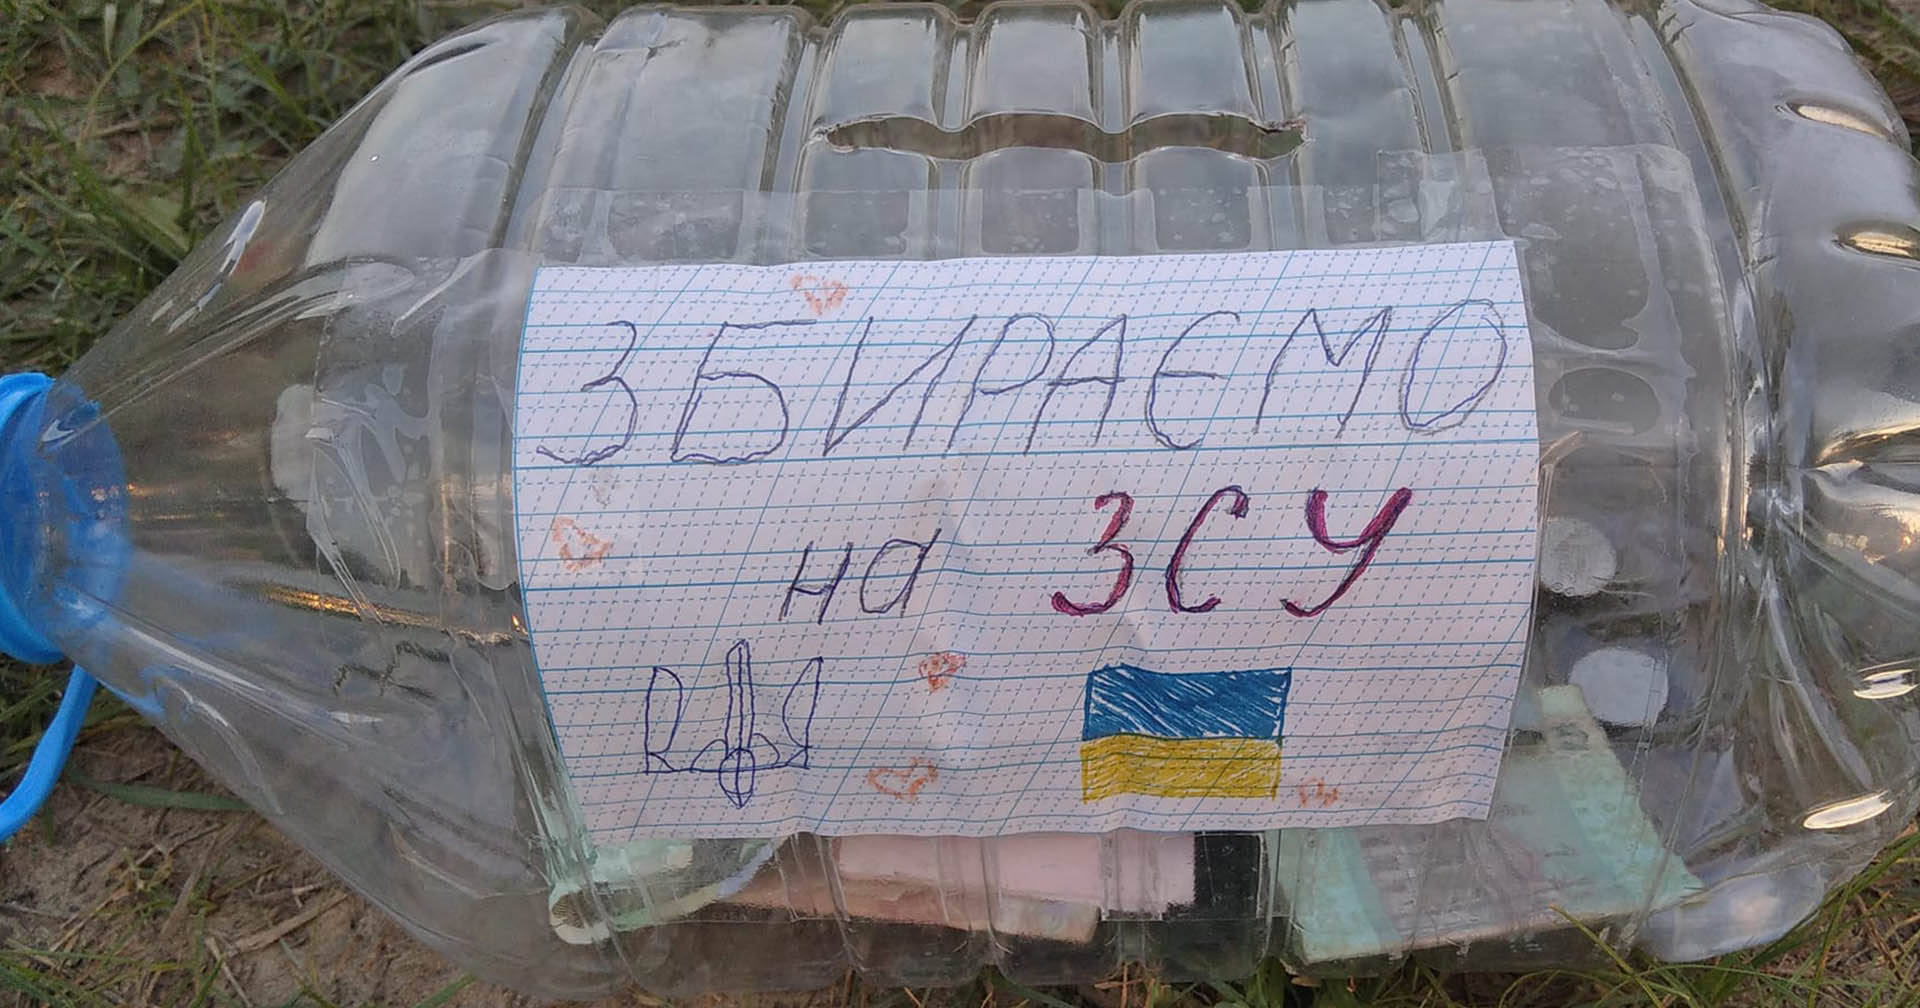 ЗБИРАЄМО
на ЗСУ